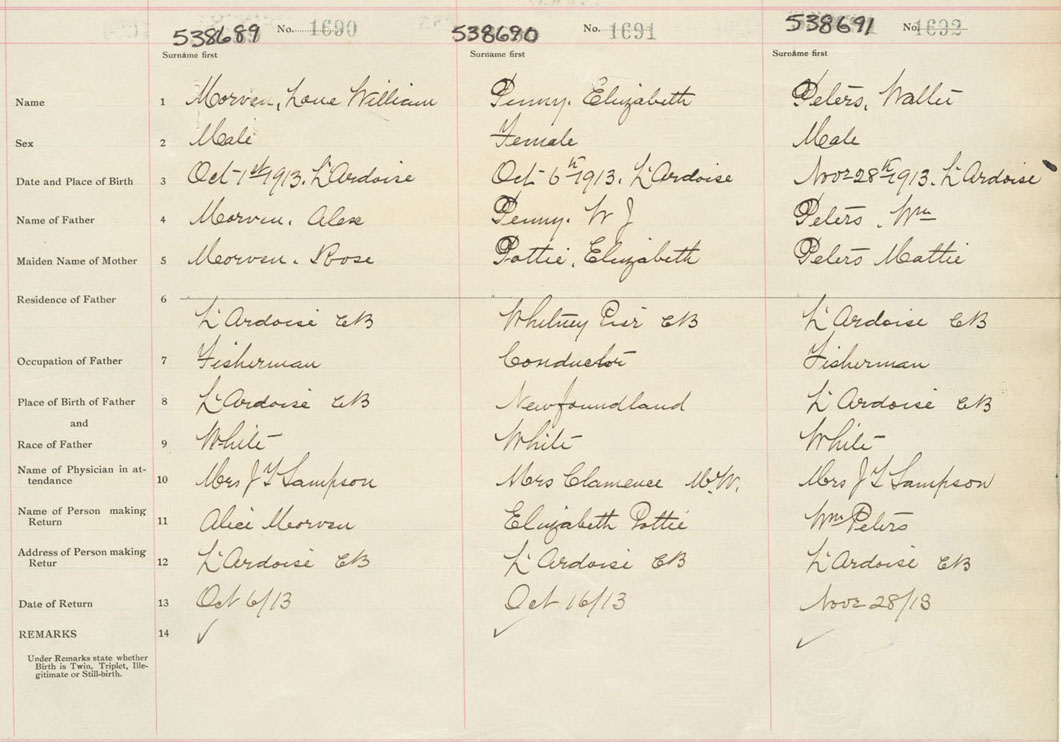 538689 No. 1690 538690 No. 1691 538691 No. 1692
Surname first Surname first Surname first
Name 1 Morven, William Penny. Elizabeth Peters, Walter
Sex 2 Male Female Male
Date and Place of Birth 3 Oct 1st 1913. L'Ardoise Oct 6th 1913. L'Ardoise Nov 28th 1913. L'Ardoise
Name of Father 4 Morven. Alex Penny. W J Peters. Wm
Maiden Name of Mother 5 Morven. Rose Pottie, Elizabeth Peters Mattie
Residence of Father 6
L'Ardoise CB Whitney Pier CB L'Ardoise CB
Occupation of Father 7 Fisherman Conductor Fisherman
Place of Birth of Father 8 L'Ardoise CB Newfoundland L'Ardoise CB
and
Race of Father 9 White White White
Name of Physician in at-
tendance 10 Mrs J T Sampson Mrs Clamence Mrs J T Sampson
Name of Person making
Return 11 Alice Morven Elizabeth Pottie Wm Peters
Address of Person making
Retur 12 L'Ardoise CB L'Ardoise CB L'Ardoise CB
Date of Return 13 Oct 6/13 Oct 16/13 Nov 28/13
REMARKS 14 ✓ ✓ ✓
Under Remarks state whether
Birth is Twin, Triplet, Ille-
gitimate or Still-birth.